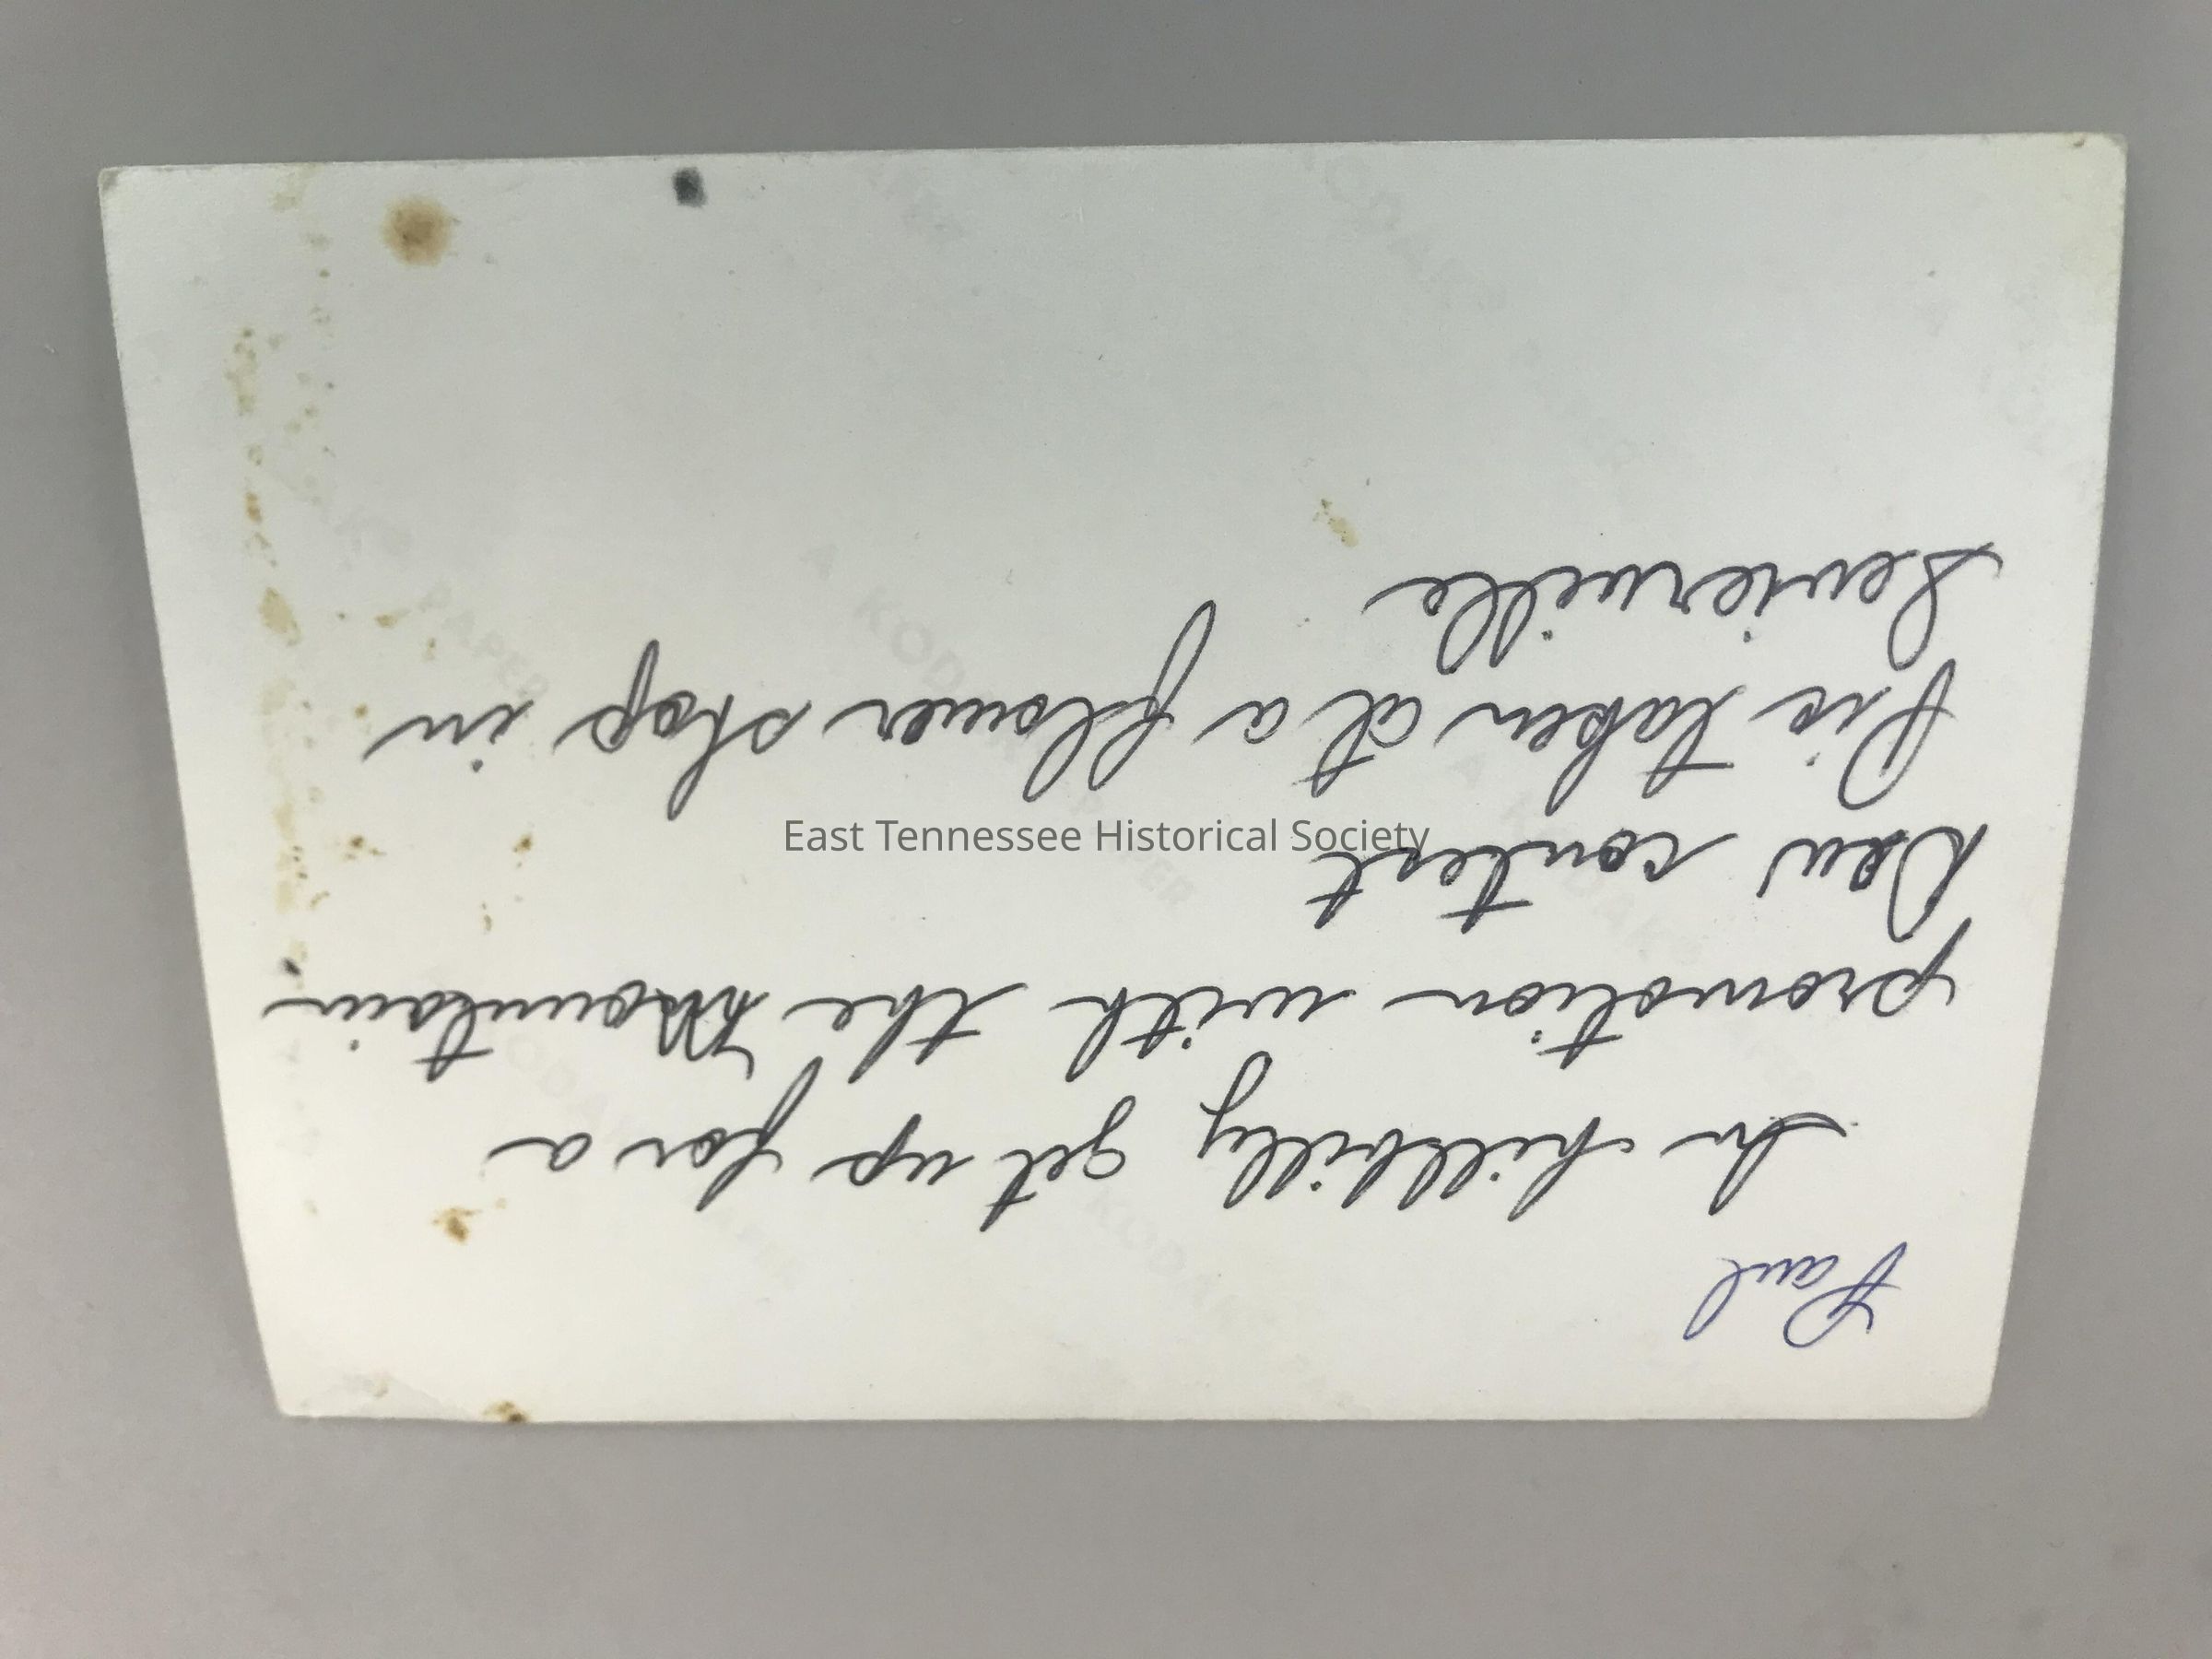 Paul
In hillbilly get up for a
promotion with the Mountain
Dew contest
Pic taken at a flower shop in
Sevierville
East Tennessee Historical Society
A KODAK PAPER